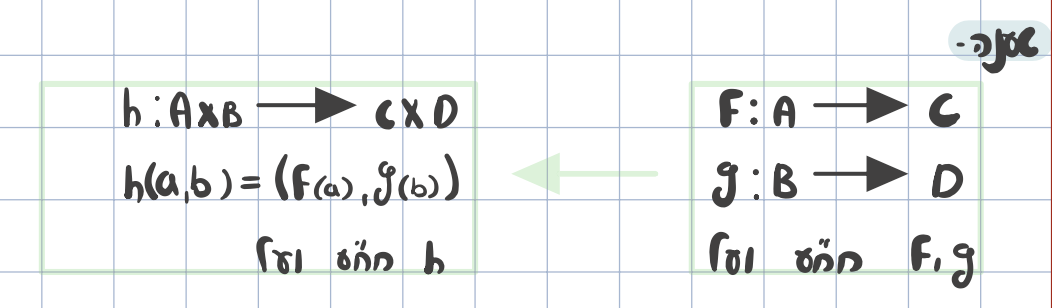 F: A → C
g: B → D
F,g חח״ע ועל
h: A×B → C×D
h(a,b) = (F(a), g(b))
h חח״ע ועל